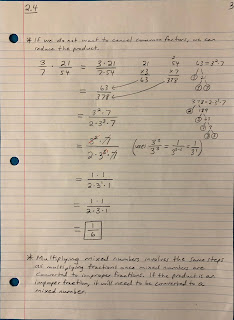 2.4
3
* If we do not want to cancel common factors, we can
reduce the product.
3/7 · 21/54 = 3·21/7·54
21 x3 63
54 x7 378
63 = 3²·7
= 63/378
378 = 2·3³·7
= 3²·7/2·3³·7
= 3²·7/2·3³·7 (use: 3²/3³ = 1/3³⁻² = 1/3¹)
= 1·1/2·3¹·1
= 1·1/2·3·1
= 1/6
* Multiplying mixed numbers involves the same steps
as multiplying fractions once mixed numbers are
converted to improper fractions. If the product is an
improper fraction, it will need to be converted to a
mixed number.